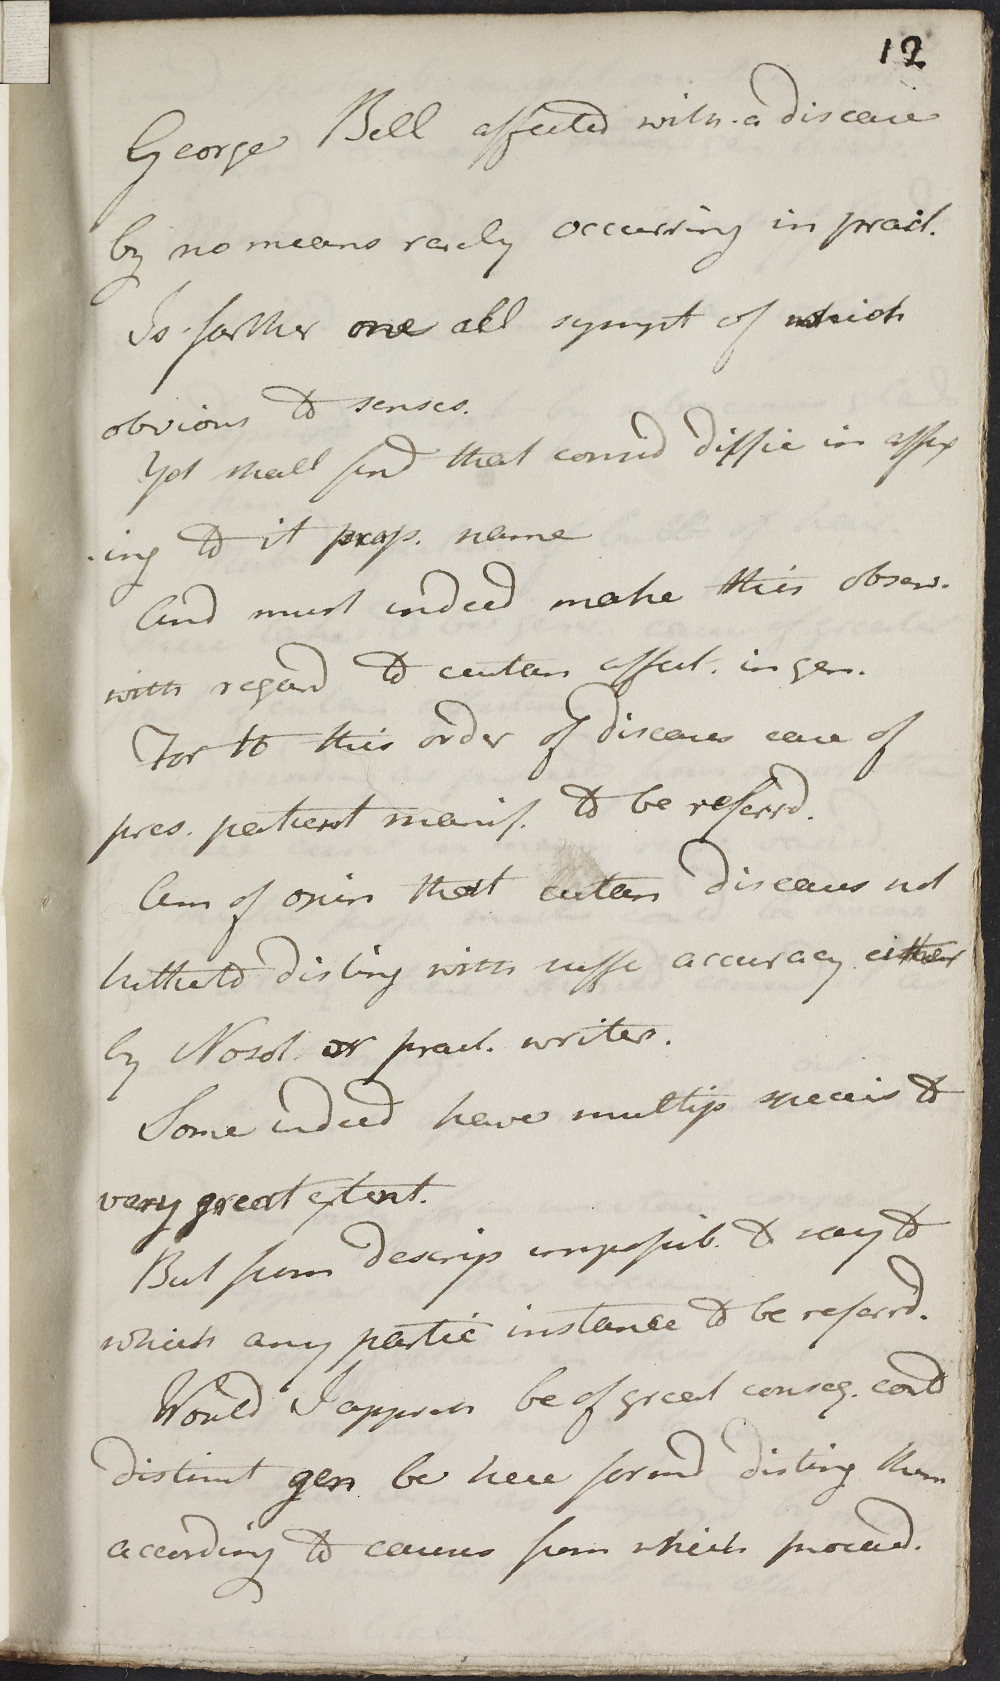 12
George Bell affected with a disease
by no means rarely occurring in pract.
Is farther one all sympt of which
obvious to senses.
Yet shall find that consid diffic in affix
-ing to it prop. name
And must indeed make this observ.
with regard to cutan affect. in gen.
For to this order of diseases case of
pres. patient manif. to be referrd.
Am of opin that cutan diseases not
hitherto disting with suffic accuracy either
by Nosol. or pract. writers.
Some indeed have multip species to
very great extent.
But from descrip impossib. to say to
which any partic instance to be referrd.
Would I appreh be of great conseq. could
distinct gen be here formd disting them
according to causes from which proceed.